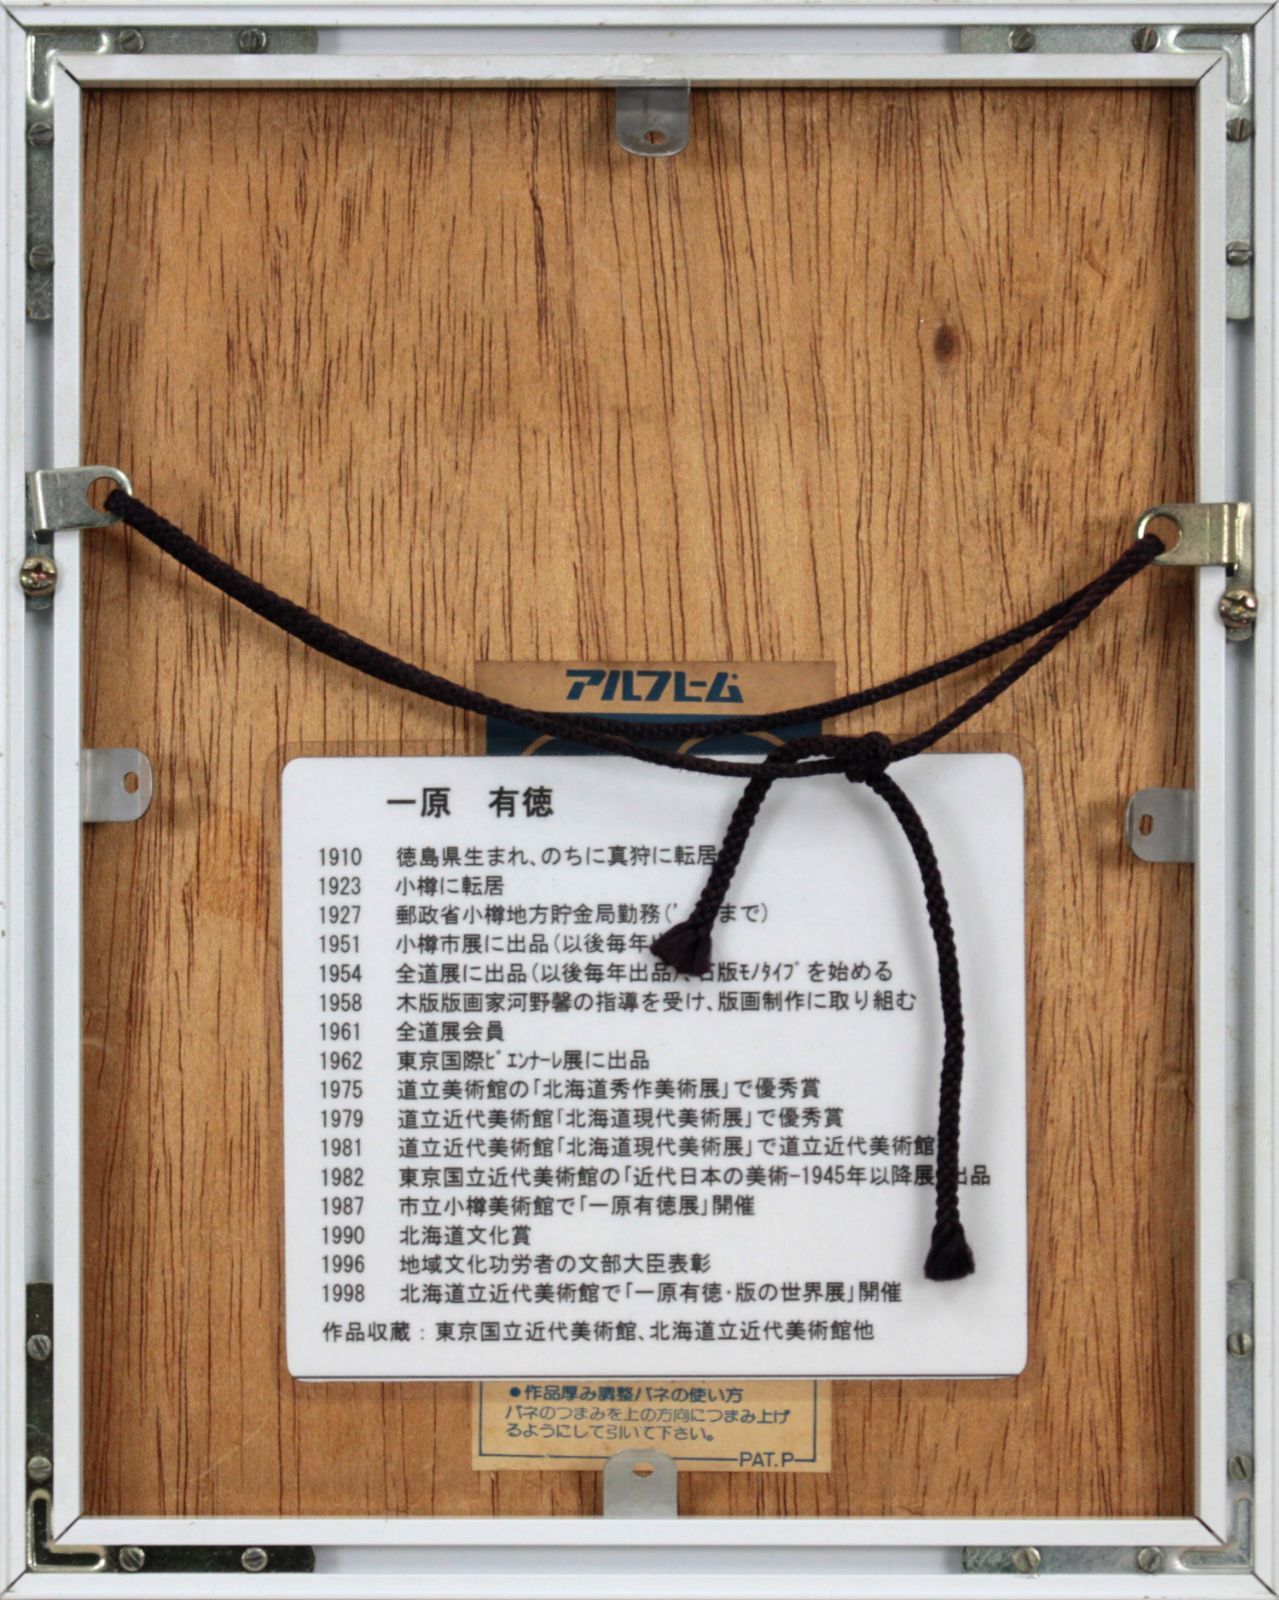 アルフレーム
一原　有徳
1910 徳島県生まれ、のちに真狩に転居
1923 小樽に転居
1927 郵政省小樽地方貯金局勤務(' まで)
1951 小樽市展に出品(以後毎年
1954 全道展に出品(以後毎年出品)、石版ﾓﾉﾀｲﾌﾟを始める
1958 木版版画家河野馨の指導を受け、版画制作に取り組む
1961 全道展会員
1962 東京国際ﾋﾞｴﾝﾅｰﾚ展に出品
1975 道立美術館の「北海道秀作美術展」で優秀賞
1979 道立近代美術館「北海道現代美術展」で優秀賞
1981 道立近代美術館「北海道現代美術展」で道立近代美術館
1982 東京国立近代美術館の「近代日本の美術-1945年以降展 出品
1987 市立小樽美術館で「一原有徳展」開催
1990 北海道文化賞
1996 地域文化功労者の文部大臣表彰
1998 北海道立近代美術館で「一原有徳・版の世界展」開催
作品収蔵：東京国立近代美術館、北海道立近代美術館他
●作品厚み調整バネの使い方
バネのつまみを上の方向につまみ上げ
るようにして引いて下さい。
PAT.P